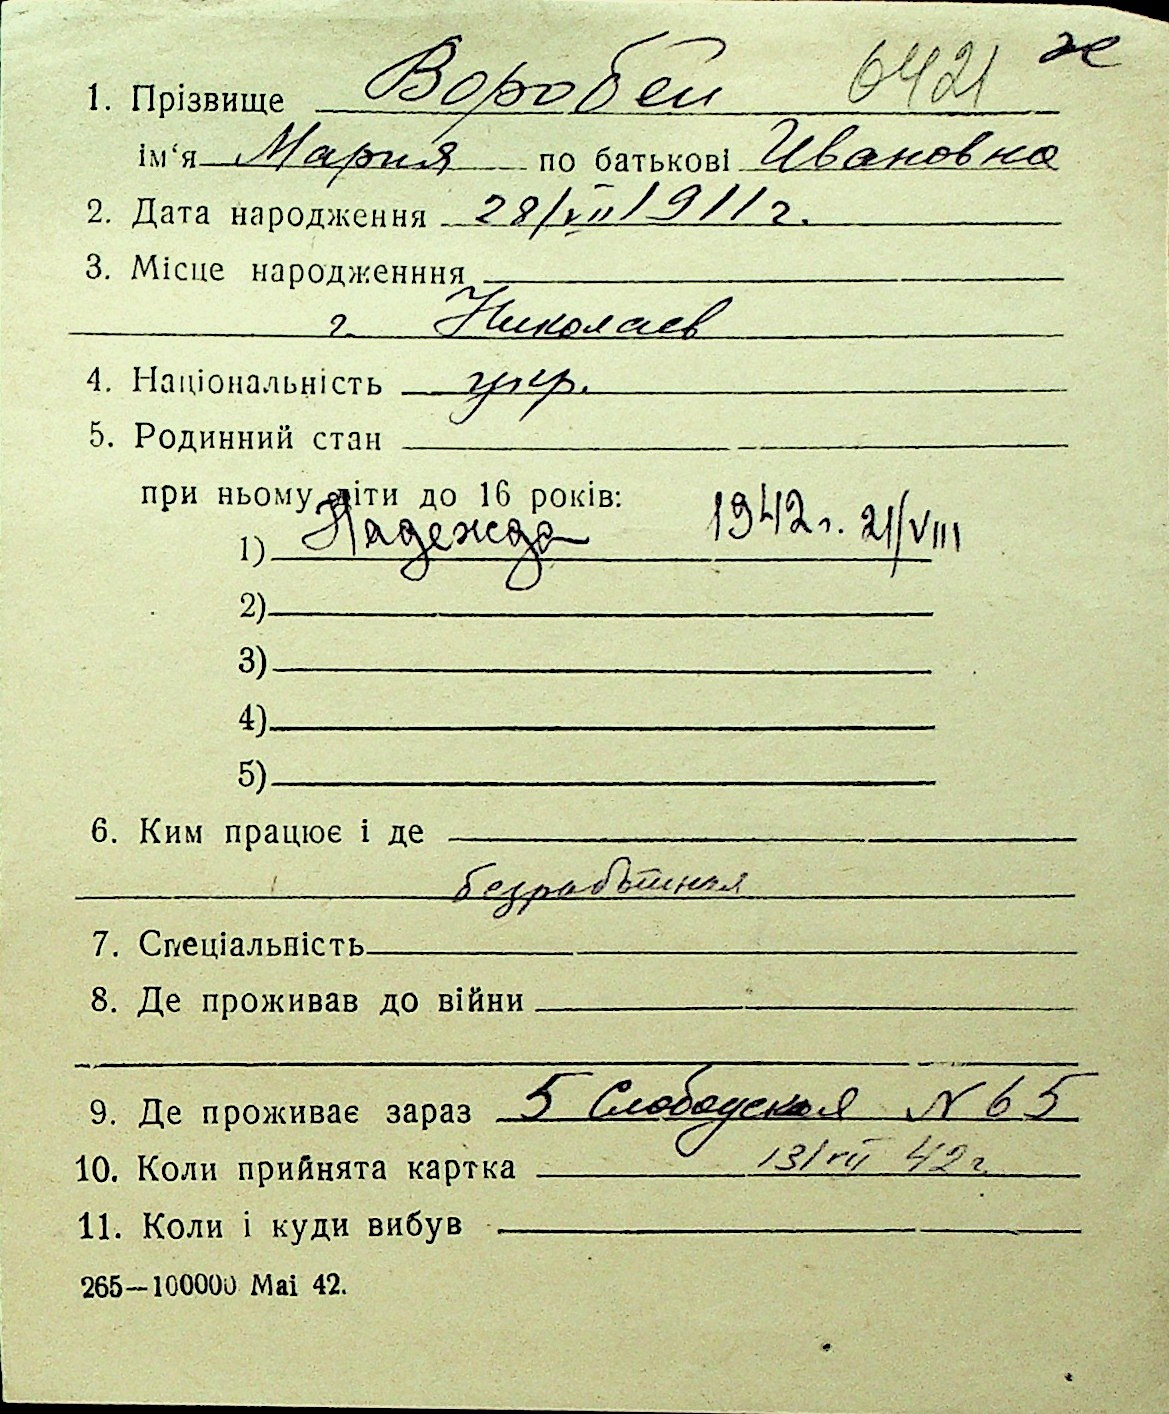 1. Прізвище Воробей 6421 ж
ім‘я Мария по батькові Ивановна
2. Дата народження 28/VII 1911 г.
3. Місце народженння
г. Николаев
4. Національність укр.
5. Родинний стан
при ньому діти до 16 років:
1) Надежда 1942 г. 21/VIII
2)
3)
4)
5)
6. Ким працює і де
безработная
7. Спеціальність
8. Де проживав до війни
9. Де проживає зараз 5 Слободская N 65
10. Коли прийнята картка 13/VII 42 г
11. Коли і куди вибув
265—100000 Mai 42.